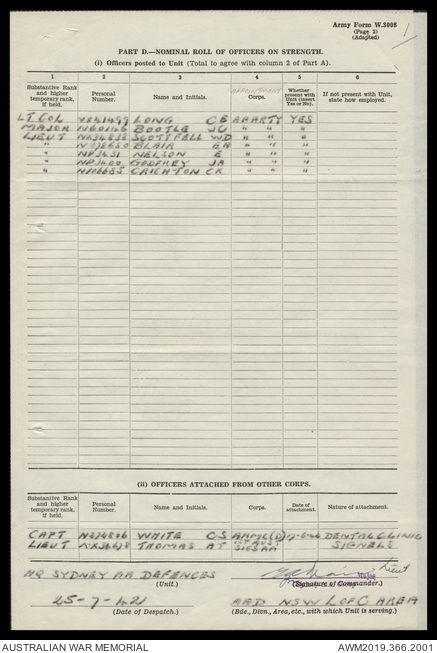 Army Form W.3008
(Page 2)
(Adapted)
1
PART D.—NOMINAL ROLL OF OFFICERS ON STRENGTH.
(i) Officers posted to Unit (Total to agree with column 2 of Part A).
1 2 3 4 5 6
Substantive Rank and higher temporary rank, if held. Personal Number. Name and Initials. APPOINTMENT Corps. Whether present with Unit (insert Yes or No). If not present with Unit, state how employed.
LT COL LONG C E AHARTY YES
MAJOR BOOTLE JC " " "
LIEUT SCOTT FELL WD " " "
" BLAIR " " "
" NP3431 NELSON E " " "
" NP3400 GODFREY JA " " "
" CRICHTON CR " " "
(ii) OFFICERS ATTACHED FROM OTHER CORPS.
Substantive Rank and higher temporary rank, if held. Personal Number. Name and Initials. Corps. Date of attachment. Nature of attachment.
CAPT WHITE CS AAMC(D) DENTAL CLINIC
LIEUT THOMAS AT SIGS AA SIGNELS
HQ SYDNEY AA DEFENCES Lieut
(Unit.) (Signature of Commander.)
25-7-42 2AD NSW L of C AREA
(Date of Despatch.) (Bde., Divn., Area, etc., with which Unit is serving.)
AUSTRALIAN WAR MEMORIAL AWM2019.366.2001